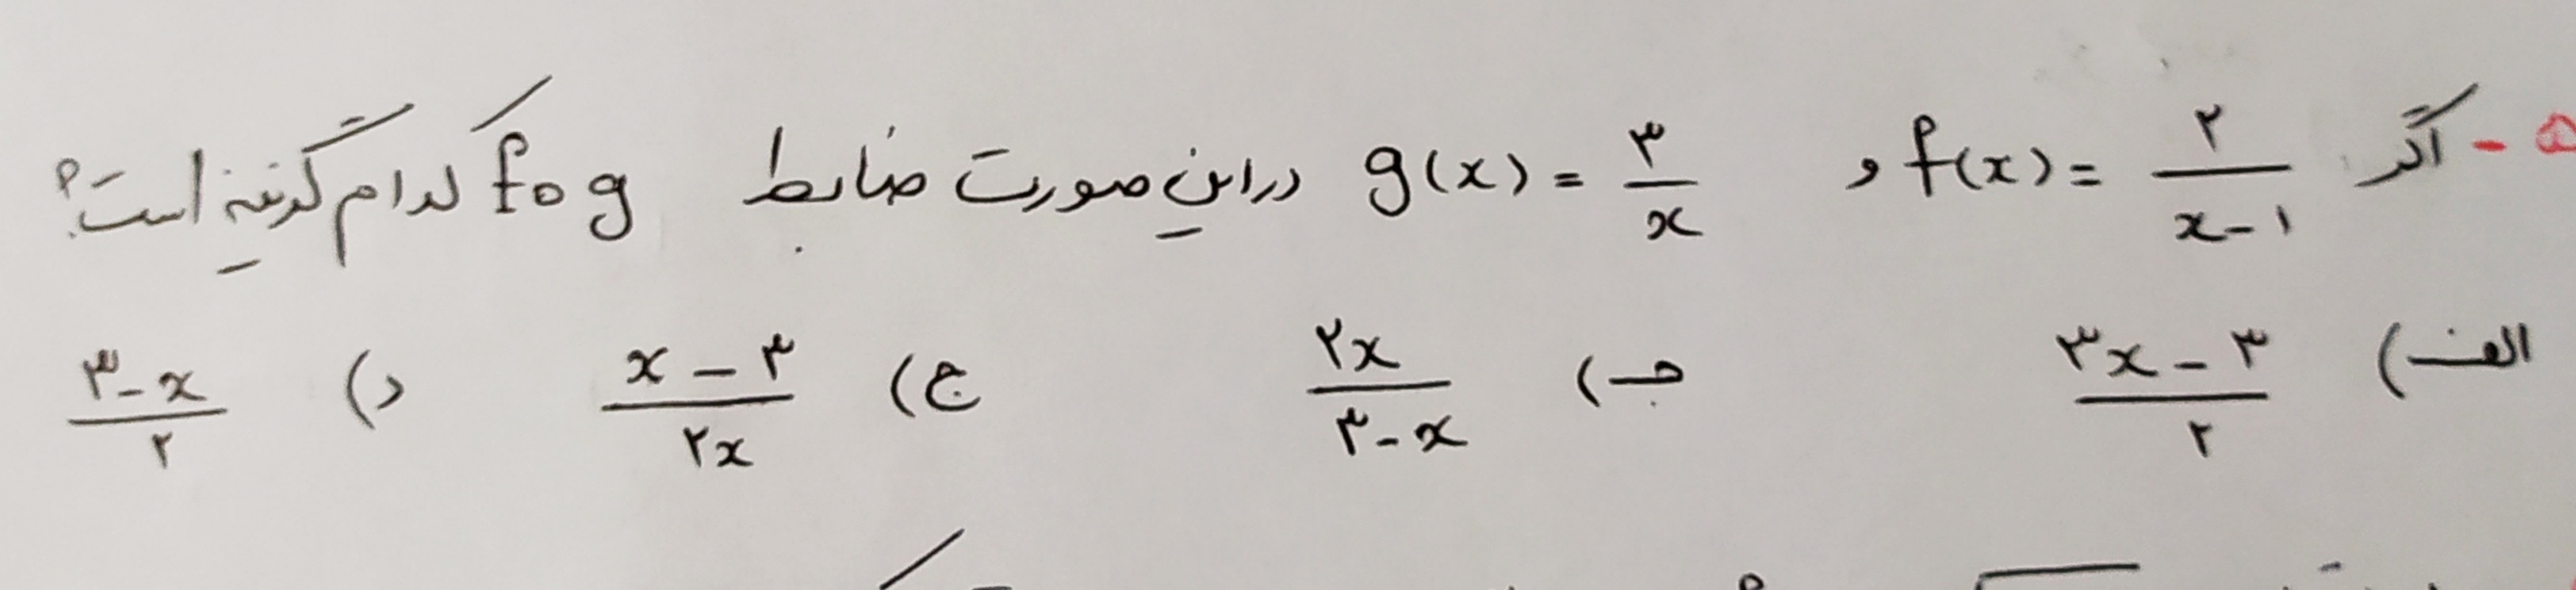 ۵- اگر f(x) = ۲/(x-۱) و g(x) = ۳/x در این صورت ضابط fog کدام گزینه است؟
الف) (۳x-۳)/۲ ب) ۲x/(۳-x) ج) (x-۳)/۲x د) (۳-x)/۲